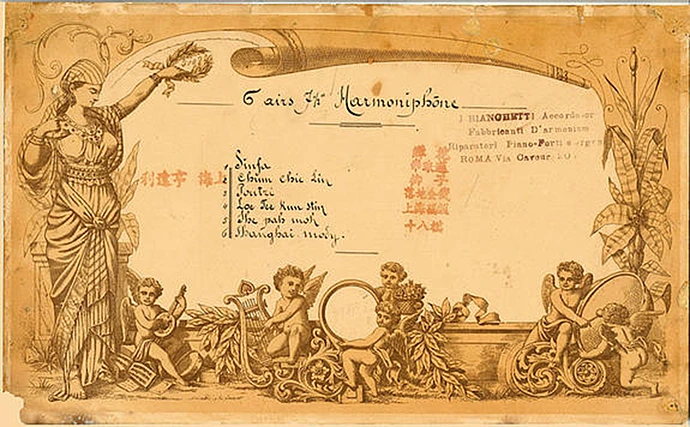 6 airs Harmoniphône
BIANCHETTI Accordator
Fabbricanti D'armonium
Riparatori Piano-Forti e organ
ROMA Via Cavour 20.
上海 亨達利
1 Sinfa
2 Chiun chie Lin
3 Toutzi
4 Loe Tee kun stin
5 She pah moh
6 Shanghai mody.
落地金錢
上海碼頭
十八摸